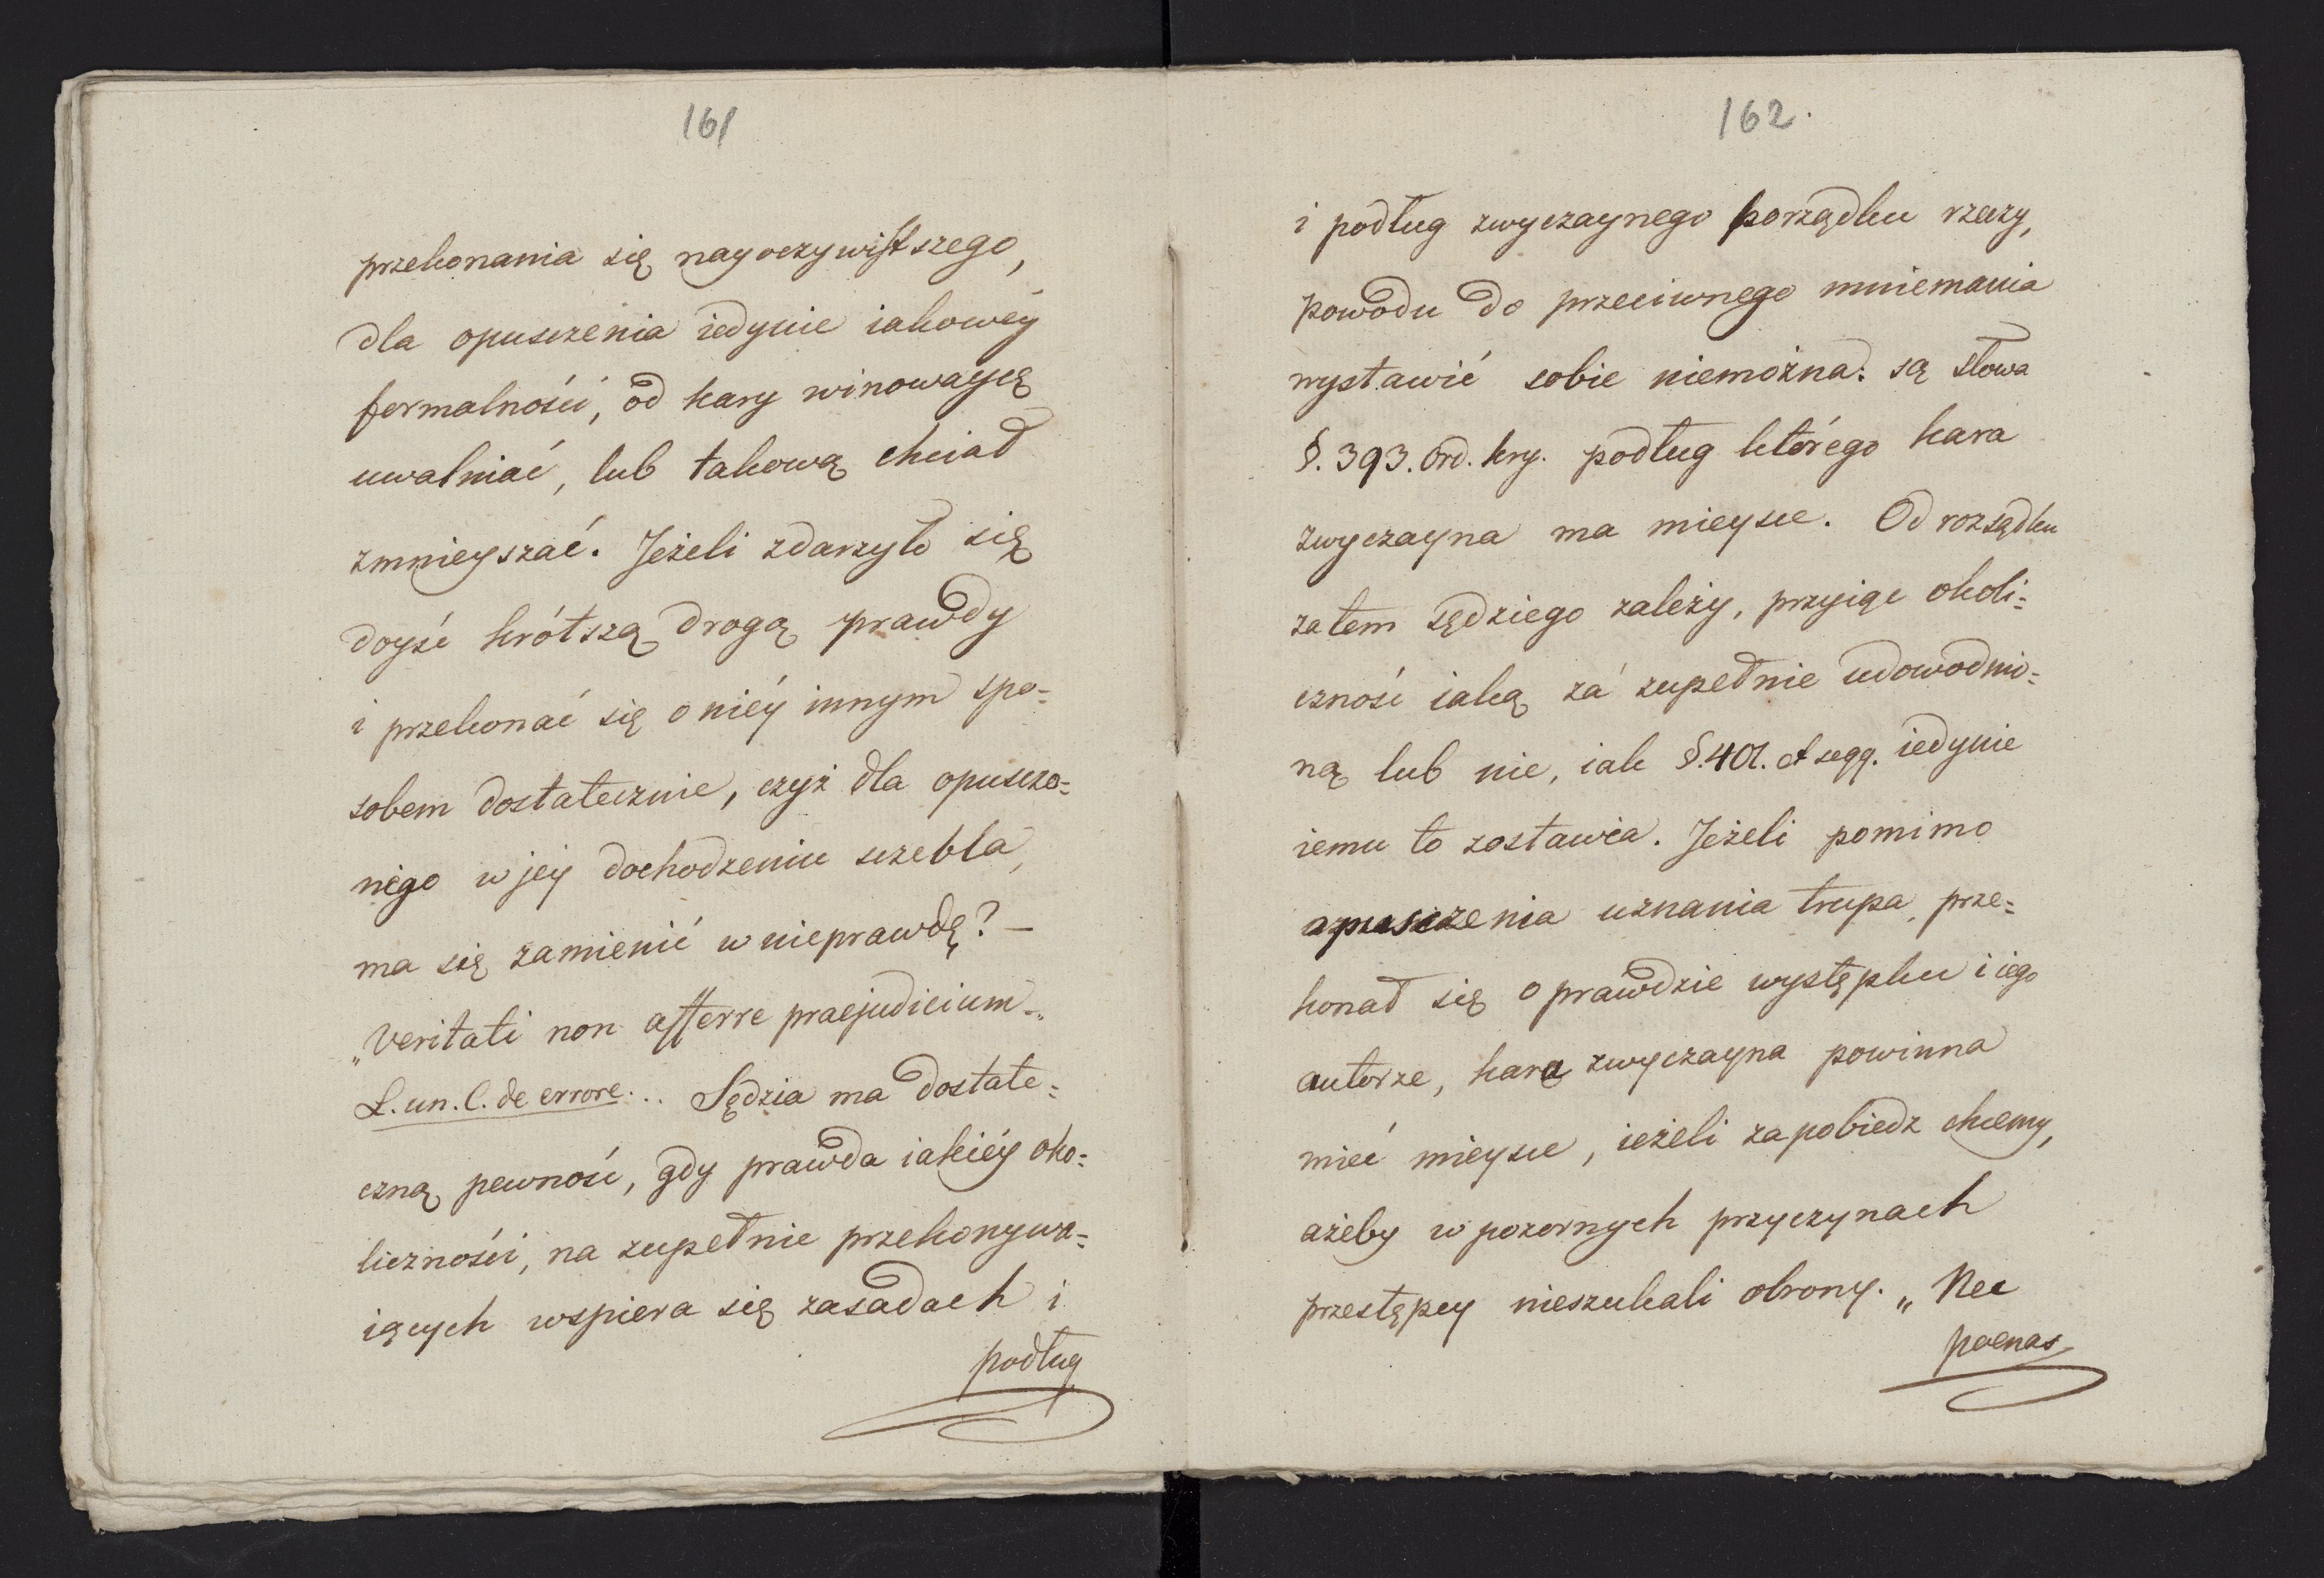 161
przekonania się nayoczywistszego,
dla opusczenia iedynie iakowéy
formalności, od kary winowaycę
uwalniać, lub takową chciał
zmnieyszać. Jeżeli zdarzyło się
doyść krótszą drogą prawdy
i przekonać się o niéy innym spo=
sobem dostatecznie, czyż dla opusczo=
nego w jey dochodzeniu szczebla,
ma się zamienić w nieprawdę? –
„Veritati non afferre praejudicium„
L. un. C. de errore... Sędzia ma dostate=
czną pewność, gdy prawda iakiéy oko=
liczności, na zupełnie przekonywa=
iących wspiera się zasadach i
podług
162.
i podług zwyczaynego porządku rzeczy,
powodu do przeciwnego mniemania
wystawić sobie niemożna: są słowa
§. 393. Ord. kry. podług którego kara
zwyczayna ma mieysce. Od rozsądku
zatem sędziego zależy, przyiąć okoli=
czność iaką za zupełnie udowodnio=
ną lub nie, iak §. 401. et seqq. iedynie
iemu to zostawia. Jeżeli pomimo
opusczenia uznania trupa, prze=
konał się o prawdzie występku i iego
autorze, kara zwyczayna powinna
mieć mieysce, ieżeli zapobiedz chcemy,
ażeby w pozornych przyczynach
przestępcy nieszukali obrony. „Nec
poenas